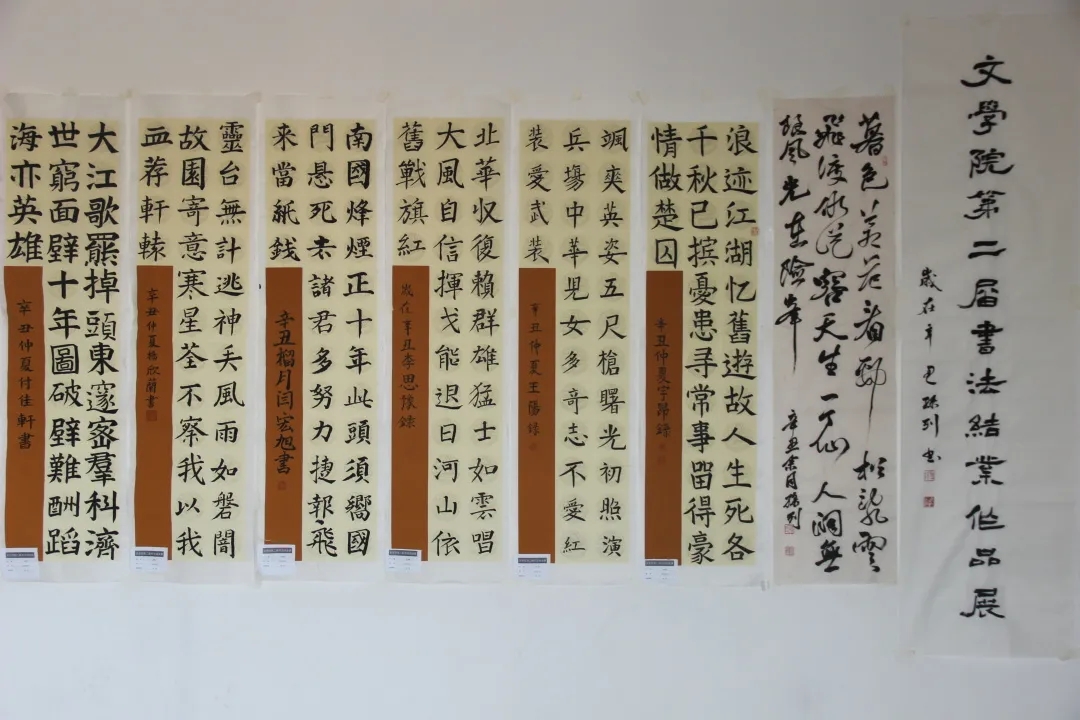 文學院第二届書法結業作品展
歲在辛丑 孫列書
暮色蒼茫看勁松亂雲
飛渡仍從容天生一个仙人洞無
限風光在險峰
辛丑余月孫列
浪迹江湖忆舊遊故人生死各
千秋已摈憂患尋常事畱得豪
情做楚囚
辛丑仲夏宇昂錄
颯爽英姿五尺槍曙光初照演
兵場中華児女多奇志不愛紅
装愛武装
辛丑仲夏王陽錄
北華収復賴群雄猛士如雲唱
大風自信揮戈能退日河山依
舊戰旗紅
歲在辛丑李思錄
南國烽煙正十年此頭須嚮國
門悬死去諸君多努力捷報飛
来當紙錢
辛丑榴月闫宏旭書
靈台無計逃神矢風雨如磐闇
故園寄意寒星荃不察我以我
血荐軒轅
辛丑仲夏楊欣書
大江歌罷掉頭東邃密羣科濟
世窮面壁十年圖破壁難酬蹈
海亦英雄
辛丑仲夏付佳軒書